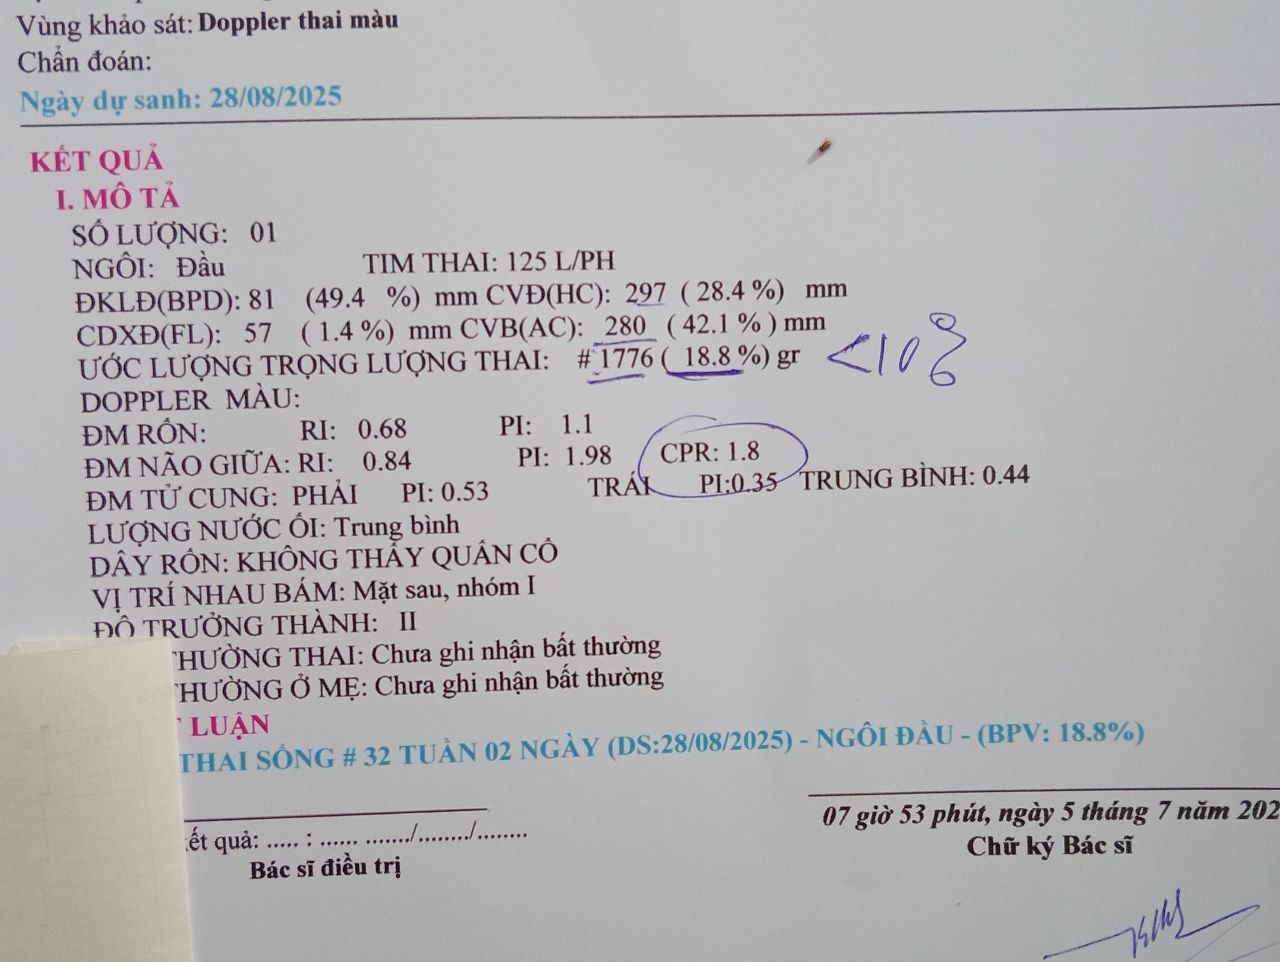 Vùng khảo sát: Doppler thai màu
Chẩn đoán:
Ngày dự sanh: 28/08/2025
KẾT QUẢ
I. MÔ TẢ
SỐ LƯỢNG: 01
NGÔI: Đầu TIM THAI: 125 L/PH
ĐKLĐ(BPD): 81 (49.4 %) mm CVĐ(HC): 297 ( 28.4 %) mm
CDXĐ(FL): 57 ( 1.4 %) mm CVB(AC): 280 ( 42.1 % ) mm
ƯỚC LƯỢNG TRỌNG LƯỢNG THAI: # 1776 ( 18.8 %) gr <10%
DOPPLER MÀU:
ĐM RỐN: RI: 0.68 PI: 1.1
ĐM NÃO GIỮA: RI: 0.84 PI: 1.98 CPR: 1.8
ĐM TỬ CUNG: PHẢI PI: 0.53 TRÁI PI:0.35 TRUNG BÌNH: 0.44
LƯỢNG NƯỚC ỐI: Trung bình
DÂY RỐN: KHÔNG THẤY QUẤN CỔ
VỊ TRÍ NHAU BÁM: Mặt sau, nhóm I
ĐỘ TRƯỞNG THÀNH: II
THƯỜNG THAI: Chưa ghi nhận bất thường
THƯỜNG Ở MẸ: Chưa ghi nhận bất thường
LUẬN
THAI SỐNG # 32 TUẦN 02 NGÀY (DS:28/08/2025) - NGÔI ĐẦU - (BPV: 18.8%)
07 giờ 53 phút, ngày 5 tháng 7 năm 202
ết quả: ..... : ...... ......./......../........
Chữ ký Bác sĩ
Bác sĩ điều trị